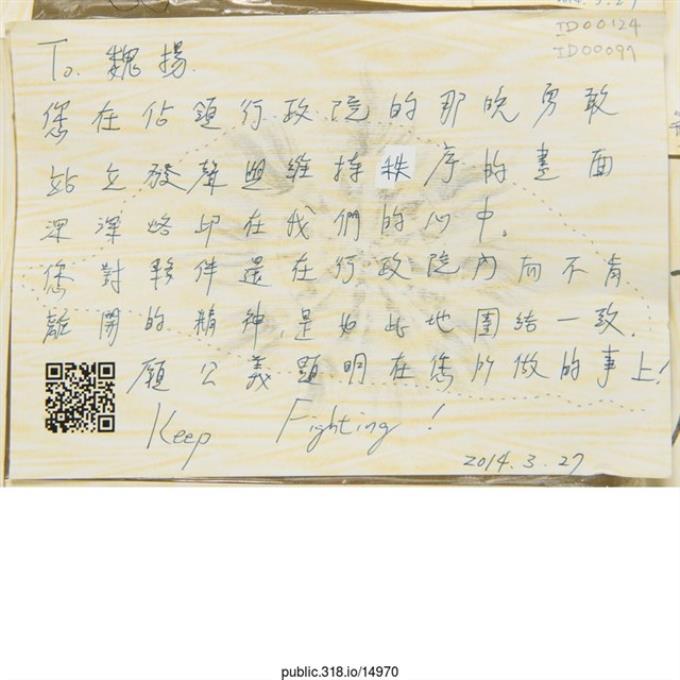 ID00124
ID00097
To. 魏揚.
您在佔領行政院的那晚勇敢
站立發聲與維持秩序的畫面
深深烙印在我們的心中。
您對夥伴還在行政院內而不肯
離開的精神,是如此地團結一致.
願公義顯明在您所做的事上!
Keep Fighting!
2014.3.27
public.318.io/14970